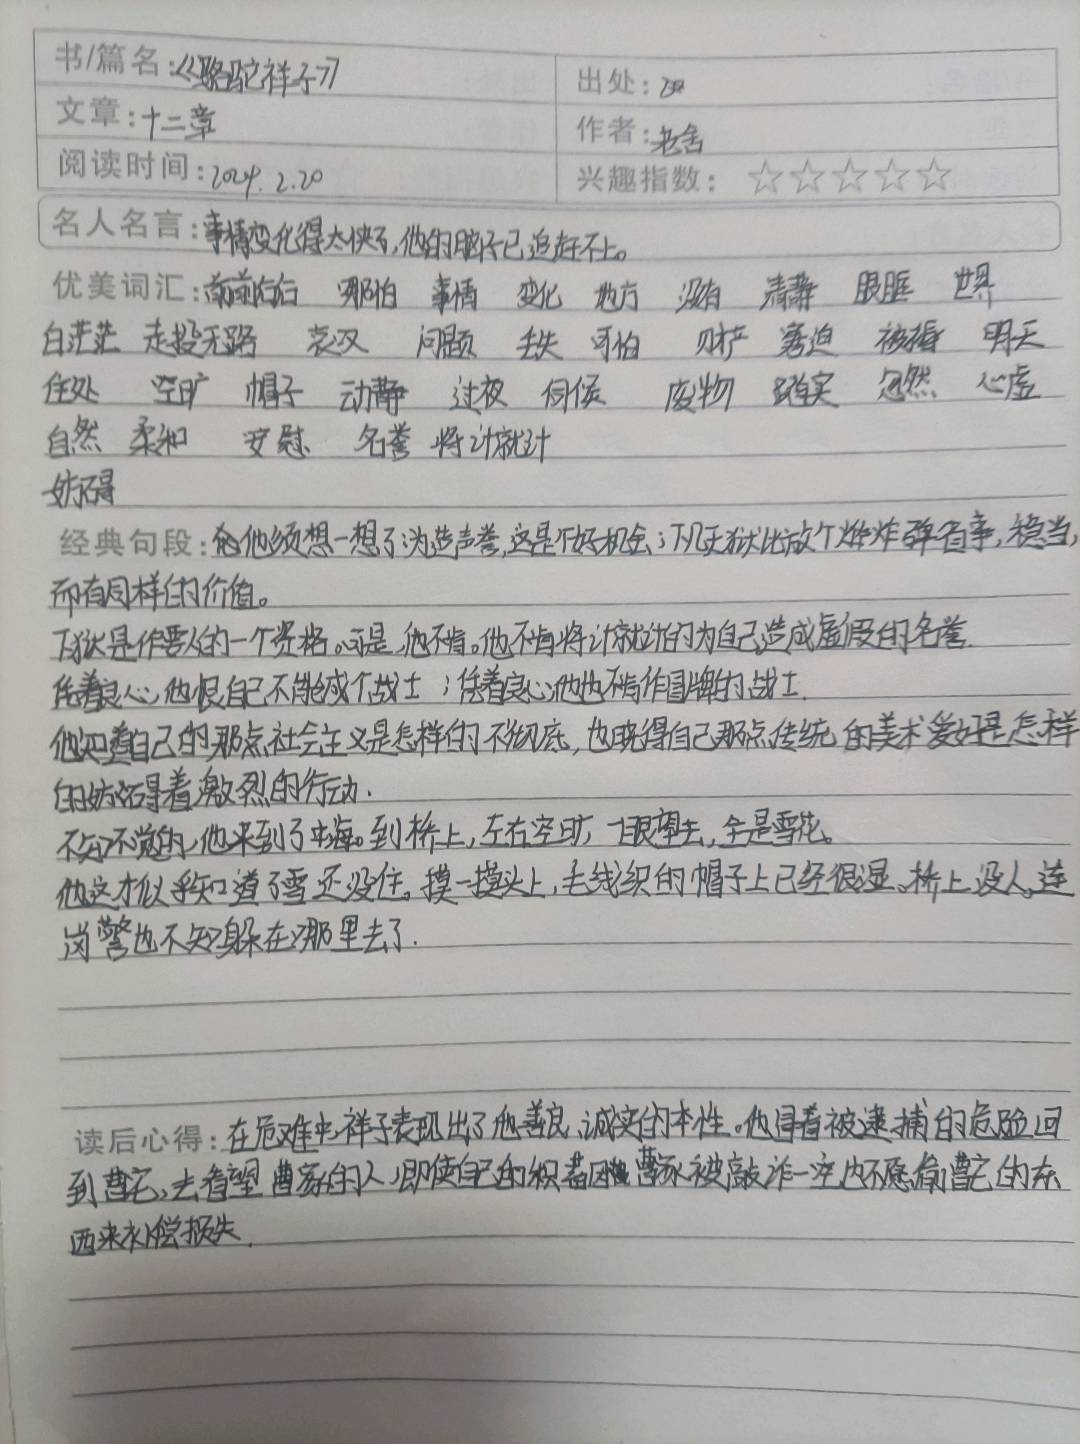 书/篇名：《骆驼祥子》 出处：
文章：十二章 作者：老舍
阅读时间：2024.2.20 兴趣指数：☆☆☆☆☆
名人名言：事情变化得太快了，他的脑子已追赶不上。
优美词汇：前前后后 哪怕 事情 变化 地方 没有 清静 眼眶 世界
白茫茫 走投无路 哀叹 问题 丢失 可怕 财产 窘迫 被褥 明天
住处 空旷 帽子 动静 过夜 伺候 废物 踏实 忽然 心虚
自然 柔和 安慰 名誉 将计就计
妨碍
经典句段：他须想一想了：为造声誉，这是个好机会；下几天狱比放个炸炸弹省事，稳当，
而有同样的价值。
下狱是作要人的一个资格。可是，他不肯。他不肯将计就计的为自己造成虚假的名誉.
凭着良心，他恨自己不能成个战士；凭着良心他也不肯作冒牌的战士.
他知道自己的那点社会主义是怎样的不彻底，也晓得自己那点传统的美术爱好是怎样
的妨碍着激烈的行动.
不知不觉的，他来到了中海。到桥上，左右空旷，一眼望去，全是雪花。
他这才似乎知道了雪还没住。摸一摸头上，毛线织的帽子上已经很湿。桥上没人，连
岗警也不知躲在哪里去了.
读后心得：在危难中，祥子表现出了他善良、诚实的本性。他冒着被逮捕的危险回
到曹宅，去看望曹家的人，即使自己的积蓄因曹家被敲诈一空也不愿偷曹宅的东
西来补偿损失.